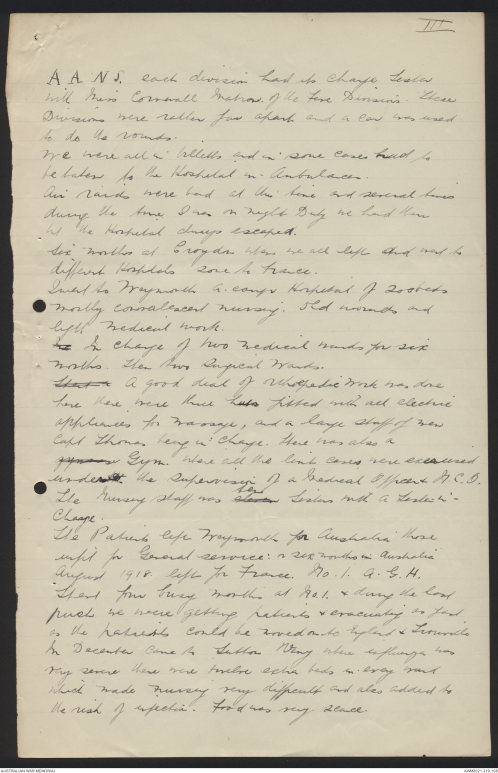 III
A A N S. each division had its Charge Sister
with Miss Cornwall Matron. of the Five Divisions. These
Divisions were rather far apart and a car was used
to do the rounds.
We were all in billetts and in some cases had to
be taken to the Hospital in Ambulances.
Air raids were bad at this time and several times
during the time I was on night Duty we had them
but the Hospital always escaped.
Six months at Croydon when we all left and went to
different Hospitals some to France.
I went to Weymouth a camp Hospital of 200 beds
mostly convalescent nursing. Old wounds and
light medical work.
In charge of two medical wards for six
months. Then two Surgical Wards.
A good deal of Orthopedic Work was done
here there were three huts fitted with all electric
appliances for massage, and a large staff of men
Capt Thomas being in Charge. There was also a
Gym. where all the limb cases were exercised
under the supervision of a Medical Officer & N.C.O.
The Nursing staff was ten eleven Sisters with a Sister-in-
Charge.
The Patients left Weymouth for Australia those
unfit for General service: or six months in Australia
August 1918 left for France. No. 1. A.G.H.
Spent four busy months at No. 1. & during the last
push we were getting patients & evacuating as fast
as the patients could be moved on to England & Trouville
In December came to Sutton Veny where influenza was
very severe there were twelve extra beds in every ward
which made nursing very difficult and also added to
the risk of infection. Food was very scarce.
AUSTRALIAN WAR MEMORIAL